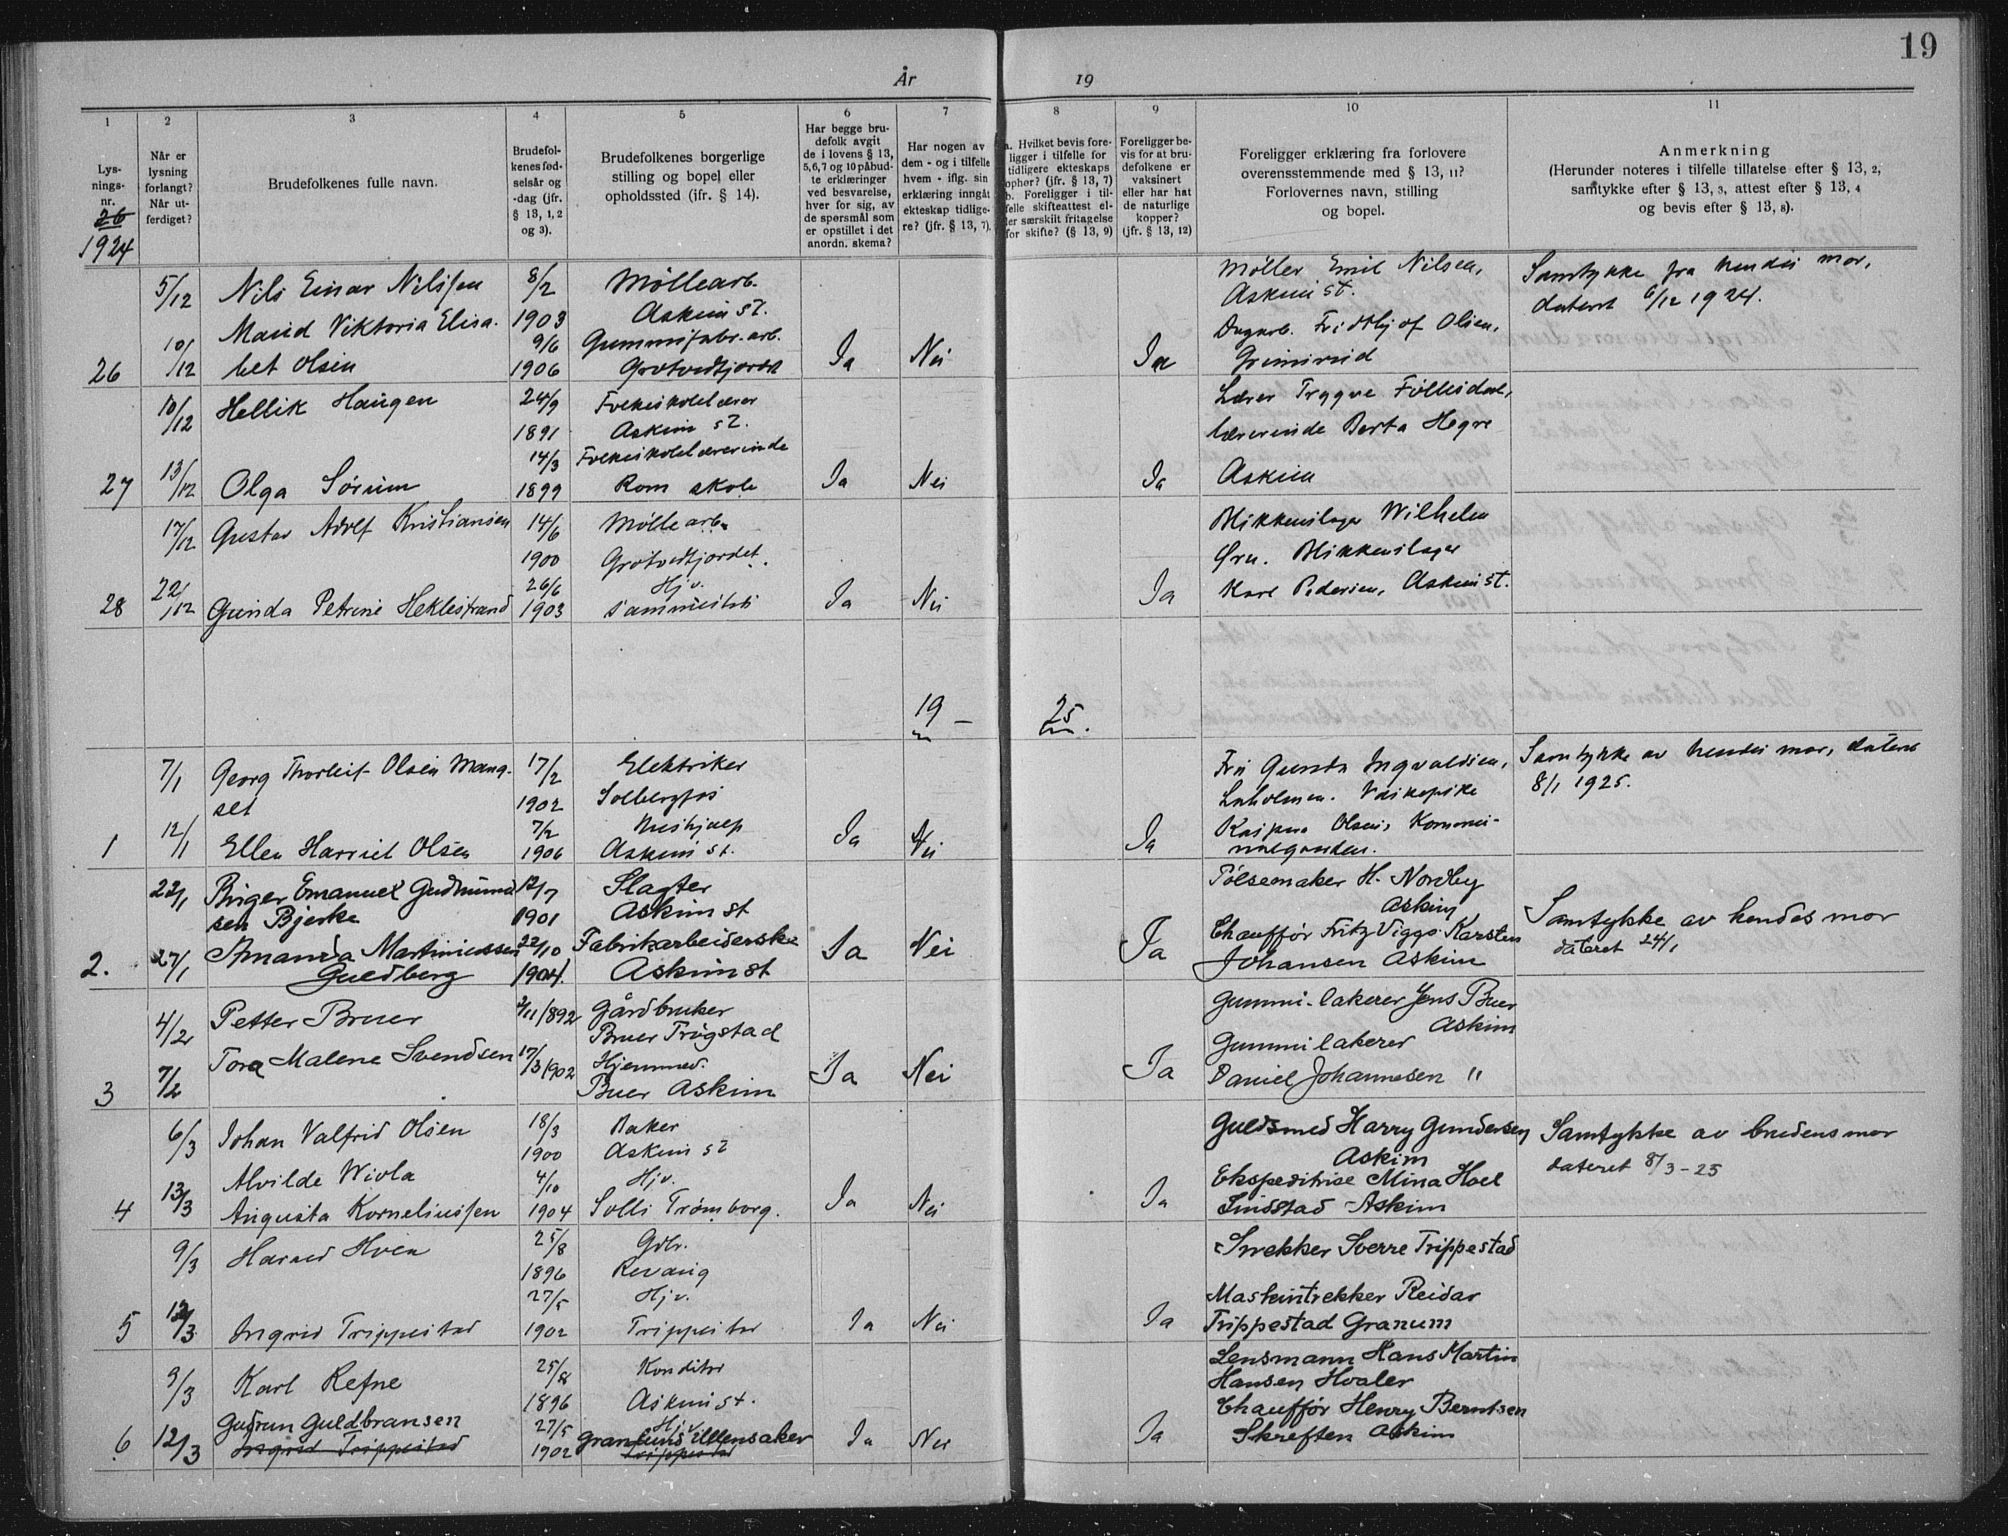 19
År 19
1
2
3
4
5
6
7
8
9
10
11
Lys-
nings-
nr.
Når er
lysning
forlangt?
Når ut-
ferdiget?
Brudefolkenes fulle navn.
Brudefol-
kenes fød-
selsår og
-dag (jfr.
§ 13, 1, 2
og 3).
Brudefolkenes borgerlige
stilling og bopel eller
opholdssted (jfr. § 14).
Har begge bru-
defolk avgit
de i lovens § 13,
5,6,7 og 10 påbud-
te erklæringer
ved besvarelse,
hver for sig, av
de spørsmål som
er opstillet i det
anordn. skema?
Har nogen av
dem - og i tilfelle
hvem - iflg. sin
erklæring inngåt
ekteskap tidlige-
re? (jfr. § 13, 7).
a. Hvilket bevis fore-
ligger i tilfelle for
tidligere ekteskaps
ophør? (jfr. § 13, 7)
b. Foreligger i til-
felle skifteattest el-
ler særskilt fritagelse
for skifte? (§ 13, 9)
Foreligger be-
vis for at bru-
defolkene er
vaksinert
eller har hat
de naturlige
kopper?
(jfr. § 13, 12)
Foreligger erklæring fra forlovere
overensstemmende med § 13, 11?
Forlovernes navn, stilling
og bopel.
Anmerkning
(Herunder noteres i tilfelle tillatelse efter § 13, 2,
samtykke efter § 13, 3, attest efter § 13, 4
og bevis efter § 13, 8).
26
1924
5/12 Nils Einar Nilssen 8/2 Møllearb. Møller Emil Nilsen, Samtykke fra hendes mor,
1903 Askim st. Askim st. datert 6/12 1924.
Maud Viktoria Elisa- 9/6 Gummifabr.arb. Dagarb. Fridthjof Olsen,
26 10/12 bet Olsen 1906 Grøtvedtjordet Ja Nei Ja Grimsrud
10/12 Hellik Haugen 24/9 Folkeskolelærer Lærer Trygve Føllesdal,
1891 Askim st. lærerinde Berta Hegre
14/3 Folkeskolelærerinde
27 13/12 Olga Sørum 1899 Rom skole Ja Nei Ja Askim
17/12 Gustav Adolf Kristiansen 14/6 Møllearb. Blikkenslager Wilhelm
1900 Grøtvedtjordet. Ørn. Blikkenslager
28 22/12 Gunda Petrine Heklestrand 26/6 1903 Hjv. sammesteds Ja Nei Ja Karl Pedersen, Askim st.
19 — 25.
7/1 Georg Thorleif Olsen Mang- 17/2 Elektriker Frü Gunda Ingvaldsen, Samtykke av hendes mor, datert
set 1902 Solbergfos Laholmen. Vaskepike 8/1 1925.
7/2 Hushjælp Kaspara Olsen, Kommu-
1 12/1 Ellen Harriet Olsen 1906 Askim st. Ja Nei Ja nalgaarden.
22/1 Birger Emanuel Gudmund- 12/7 Slagter Pølsemaker H. Nordby
sen Bjerke 1901 Askim st Askim Samtykke av hendes mor
Amanda Martiniussen 22/10 Fabrikarbeiderske Chauffør Fritz Viggo Karsten dateret 24/1
2. 27/1 Guldberg 1904. Askim st Ja Nei Ja Johansen Askim
4/2 Petter Bruer 2/11 1892 Gårdbruker Gummi-lakerer Jens Buer
Bruer Trøgstad Askim
Tora Malene Svendsen 17/3 1902 Hjemmed. Gummilakerer
3 7/2 Buer Askim Ja Nei Ja Daniel Johannesen "
6/3 Johan Valfrid Olsen 18/3 Baker Guldsmed Harry Gundersen Samtykke av brudens mor
1900 Askim st Askim dateret 8/3-25
Alvilde Wiola 4/10 Hjv. Ekspeditrise Mina Hoel
4 13/3 Augusta Korneliussen 1904 Solli Trømborg. Ja Nei Ja Lindstad Askim
9/3 Harald Hoen 25/8 Gdbr. Snekker Sverre Trippestad
1896 Revaug
27/5 Hjv. Maskintrekker Reidar
5 12/3 Ingrid Trippestad 1902 Trippestad Ja Nei Ja Trippestad Granum
9/3 Karl Refne 25/8 Konditor Lensmann Hans Martin
1896 Askim st. Hansen Hvaler
Gudrun Guldbransen 27/5 Hjv. Chauffør Henry Berntsen
6 12/3 Ingrid Trippestad 1902 Granlund Ullensaker Trippestad Ja Nei Ja Skreften Askim